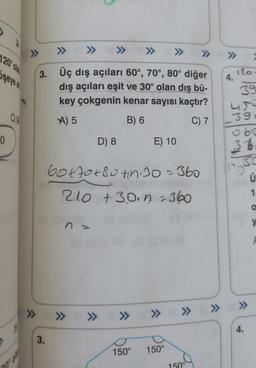 120° olan
3. Üç dış açıları 60°, 70°, 80° diğer
dış açıları eşit ve 30° olan dış bü-
key çokgenin kenar sayısı kaçtır?
A) 5 B) 6 C) 7
D) 8 E) 10
60+70+80+n.30 = 360
210 + 30.n = 360
n =
4.
3.
150° 150°
150°
4.